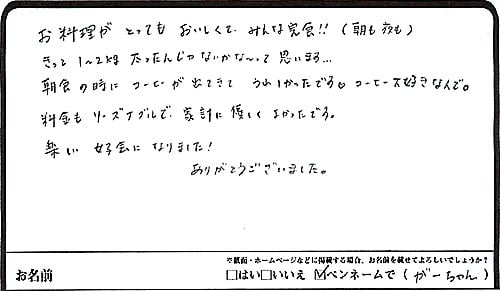 お料理が とっても おいしくて、みんな完食!!(朝も夜も)
きっと 1〜2kg 太ったんじゃないかな〜って 思います…
朝食の時に コーヒーが 出てきて うれしかったです。コーヒー大好きなんで。
料金も リーズナブルで、家計に 優しく よかったです。
楽しい 女子会に なりました!
ありがとうございました。
※紙面・ホームページなどに掲載する場合、お名前を載せてよろしいでしょうか?
お名前 □はい□いいえ ☑ペンネームで(がーちゃん)